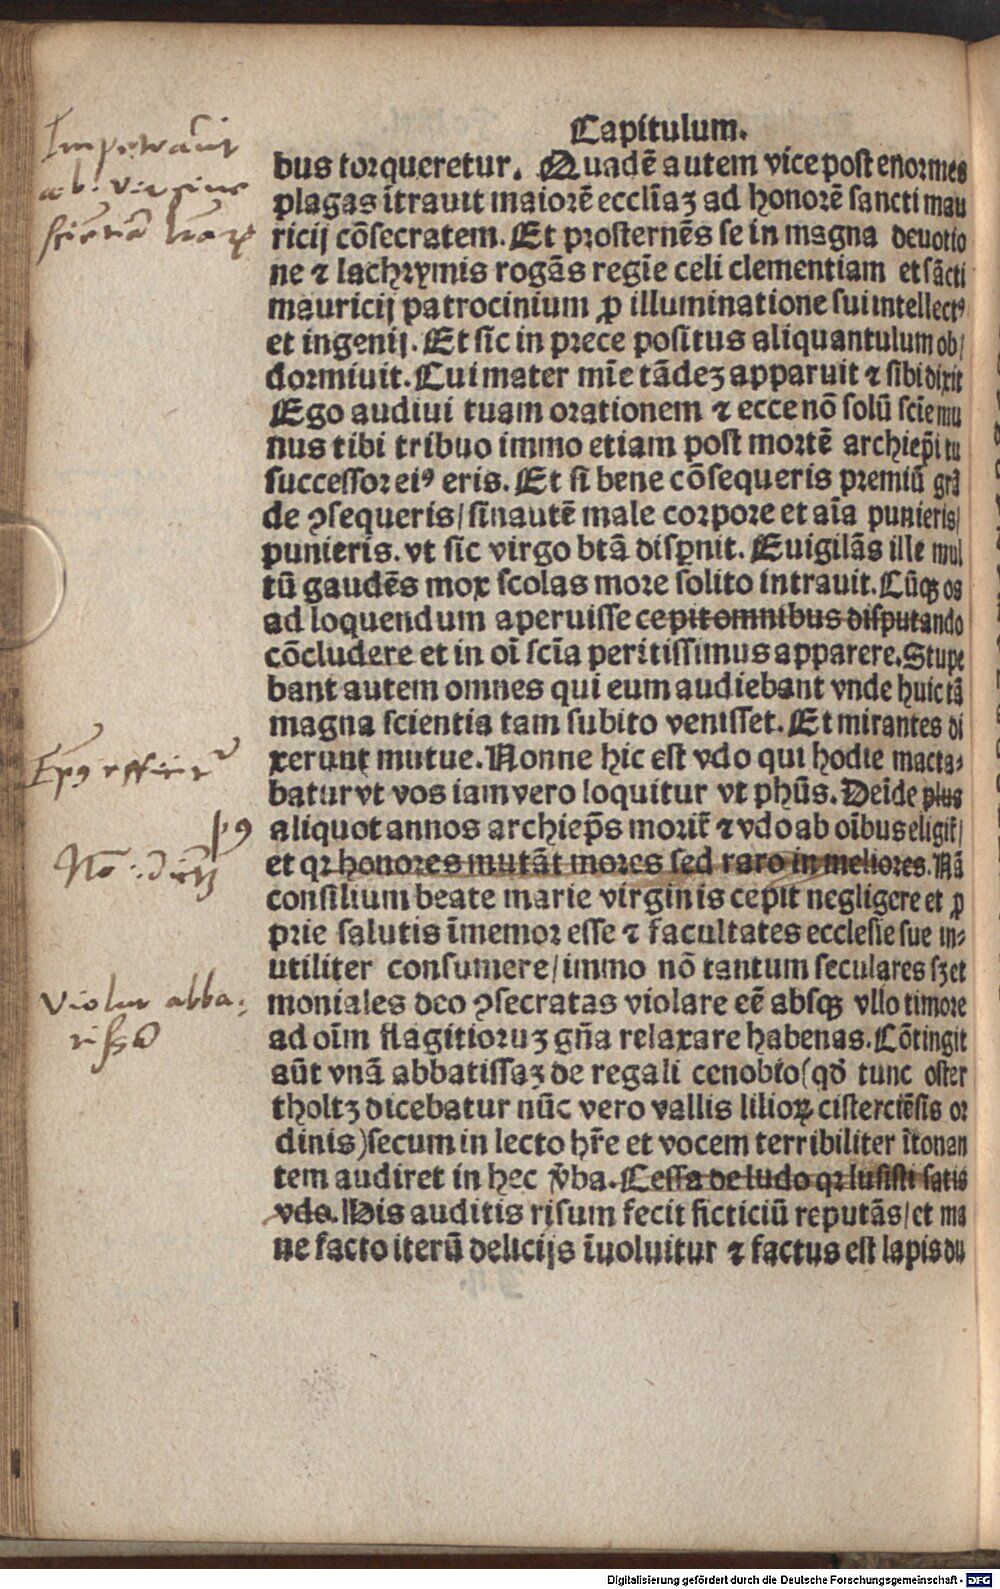 Capitulum.
bus torqueretur. Quadē autem vice post enormes
plagas ītrauit maiorē eccl̄iaꝫ ad honorē sancti mau
ricij cōsecratem. Et prosternēs se in magna deuotio
ne ⁊ lachrymis rogās regīe celi clementiam et sācti
mauricij patrocinium ꝓ illuminatione sui intellectꝰ
et ingenij. Et sic in prece positus aliquantulum ob/
dormiuit. Cui mater mīe tādeꝫ apparuit ⁊ sibi dixit
Ego audiui tuam orationem ⁊ ecce nō solū scīe mu
nus tibi tribuo immo etiam post mortē archiep̄i tu
successor eiꝰ eris. Et si bene cōsequeris premiū grā
de ꝯsequeris/sin autē male corpore et aīa punieris/
punieris. vt sic virgo btā disꝑuit. Euigilās ille mul
tū gaudēs mox scolas more solito intrauit. Cūqꝫ os
ad loquendum aperuisse cepit omnibus disputando
cōcludere et in oī scīa peritissimus apparere. Stupe
bant autem omnes qui eum audiebant vnde huic tā
magna scientia tam subito venisset. Et mirantes di
xerunt mutue. Nonne hic est vdo qui hodie macta-
batur vt vos iam vero loquitur vt phūs. Deīde plus
aliquot annos archiep̄s morit̄ ⁊ vdo ab oībus eligit̄/
et qꝛ honores mutāt mores sed raro in meliores. Nā
consilium beate marie virginis cepit negligere et ꝓ
prie salutis īmemor esse ⁊ facultates ecclesie sue in-
utiliter consumere/immo nō tantum seculares sꝫ et
moniales deo ꝯsecratas violare eē absqꝫ vllo timore
ad oīm flagitioruꝫ gn̄a relaxare habenas. Cōtingit
aūt vnā abbatissaꝫ de regali cenobio (qd̄ tunc oster
tholtꝫ dicebatur nūc vero vallis lilioꝝ cisterciēsis or
dinis) secum in lecto hr̄e et vocem terribiliter ītonan
tem audiret in hec v̄ba. Cessa de ludo qꝛ lusisti satis
vdo. His auditis risum fecit ficticiū reputās/et ma
ne facto iterū delicijs īuoluitur ⁊ factus est lapis du
Impetrauit
ab. virgine
Violat abba:
Digitalisierung gefördert durch die Deutsche Forschungsgemeinschaft - DFG